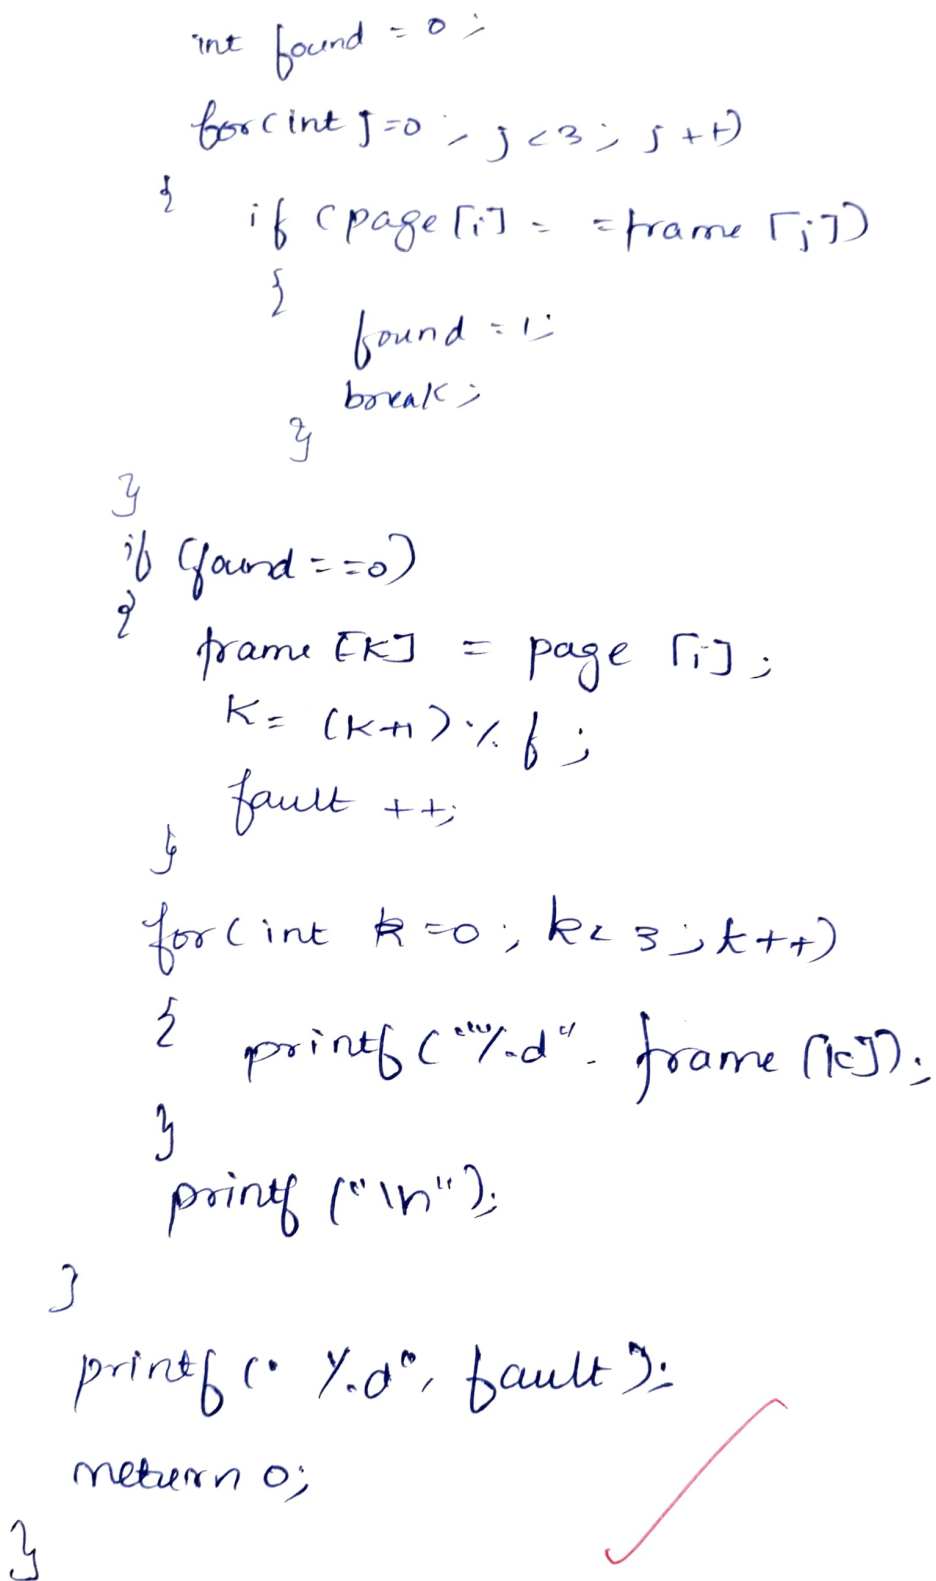 int found = 0;
for(int j=0; j<3; j++)
{
if (page[i] == frame[j])
{
found = 1;
break;
}
}
if (found==0)
{
frame[k] = page[i];
k = (k+1)%f;
fault ++;
}
for(int k=0; k<3; k++)
{
printf("%d", frame[k]);
}
printf("\n");
}
printf("%d", fault);
return 0;
}